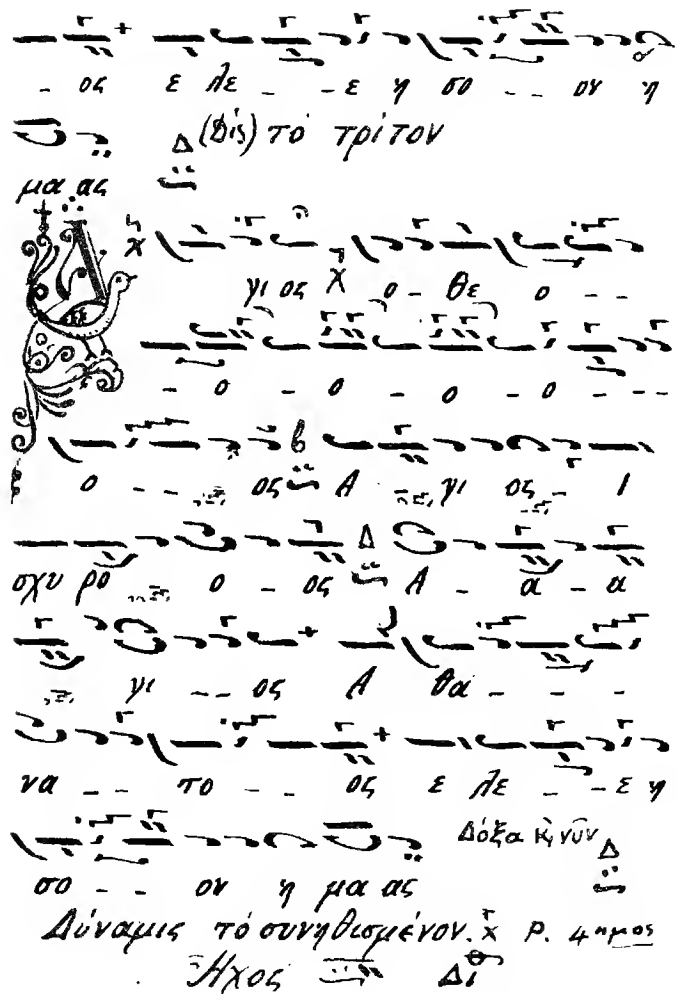 - ος ε λε - - ε η σο - - ον η
μα ας Δ (Δίς) τό τρίτον
Α γι ος χ ο - θε ο - -
- ο - ο - ο - ο - - -
ο - - - ος Α γι ος - Ι
σχυ ρο ο - ος Δ Α - α - α
γι - - ος Α θα - - -
να - - το - - ος ε λε - - ε η
σο - - ον η μα ας Δόξα κ, νῦν Δ
Δύναμις τό συνηθισμένον. χ ρ. 4ημος
Ἦχος Δι